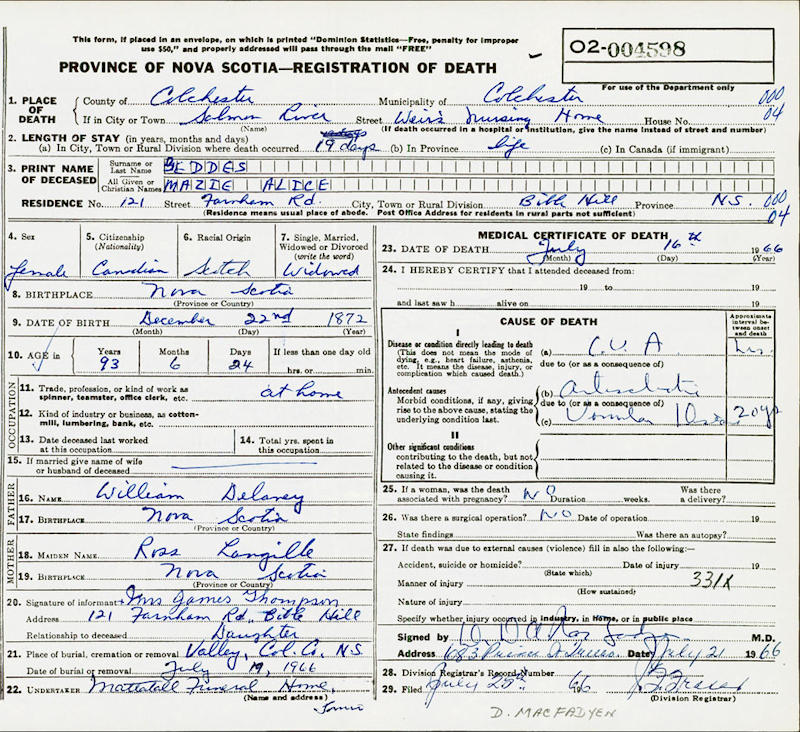 This form, if placed in an envelope, on which is printed "Dominion Statistics—Free, penalty for improper
use $50," and properly addressed will pass through the mail "FREE"
O2-004598
PROVINCE OF NOVA SCOTIA—REGISTRATION OF DEATH
For use of the Department only
1. PLACE OF DEATH County of Colchester Municipality of Colchester 000
If in City or Town Salmon River Street Weirs Nursing Home House No. 04
(Name) (If death occurred in a hospital or institution, give the name instead of street and number)
2. LENGTH OF STAY (in years, months and days)
(a) In City, Town or Rural Division where death occurred 19 days (b) In Province life (c) In Canada (if immigrant)
3. PRINT NAME OF DECEASED Surname or Last Name GEDDES
All Given or Christian Names MAZIE ALICE
RESIDENCE No. 121 Street Farnham Rd. City, Town or Rural Division Bible Hill Province N.S. 000
(Residence means usual place of abode. Post Office Address for residents in rural parts not sufficient) 04
4. Sex 5. Citizenship (Nationality) 6. Racial Origin 7. Single, Married, Widowed or Divorced (write the word)
female Canadian Scotch Widowed
8. BIRTHPLACE Nova Scotia
(Province or Country)
9. DATE OF BIRTH December 22nd 1872
(Month) (Day) (Year)
10. AGE in Years Months Days If less than one day old
93 6 24 hrs. or min.
OCCUPATION
11. Trade, profession, or kind of work as spinner, teamster, office clerk, etc. at home
12. Kind of industry or business, as cotton-mill, lumbering, bank, etc.
13. Date deceased last worked at this occupation 14. Total yrs. spent in this occupation
15. If married give name of wife or husband of deceased
FATHER
16. NAME William Delaney
17. BIRTHPLACE Nova Scotia
(Province or Country)
MOTHER
18. MAIDEN NAME Ross Langille
19. BIRTHPLACE Nova Scotia
(Province or Country)
20. Signature of informant Mrs James Thompson
Address 121 Farnham Rd. Bible Hill
Relationship to deceased Daughter
21. Place of burial, cremation or removal Valley, Col. Co. N.S.
Date of burial or removal July 19, 1966
22. UNDERTAKER Mattatall Funeral Home,
(Name and address)
Truro
MEDICAL CERTIFICATE OF DEATH
23. DATE OF DEATH July 16th 1966
(Month) (Day) (Year)
24. I HEREBY CERTIFY that I attended deceased from:
19 to 19
and last saw h alive on 19
CAUSE OF DEATH Approximate interval between onset and death
I
Disease or condition directly leading to death
(This does not mean the mode of dying, e.g., heart failure, asthenia, etc. It means the disease, injury, or complication which caused death.)
(a) C.V.A hrs.
due to (or as a consequence of)
Antecedent causes
Morbid conditions, if any, giving rise to the above cause, stating the underlying condition last.
(b)
due to (or as a consequence of)
(c) 20 yrs
II
Other significant conditions
contributing to the death, but not related to the disease or condition causing it.
25. If a woman, was the death associated with pregnancy? NO Duration weeks. Was there a delivery?
26. Was there a surgical operation? NO Date of operation 19
State findings Was there an autopsy?
27. If death was due to external causes (violence) fill in also the following:—
Accident, suicide or homicide? Date of injury 19
(State which)
Manner of injury 331X
(How sustained)
Nature of injury
Specify whether injury occurred in industry, in home, or in public place
Signed by M.D.
Address 683 Prince St Truro. Date July 21 1966
28. Division Registrar's Record Number
29. Filed July 25th 66
(Division Registrar)
D. MACFADYEN